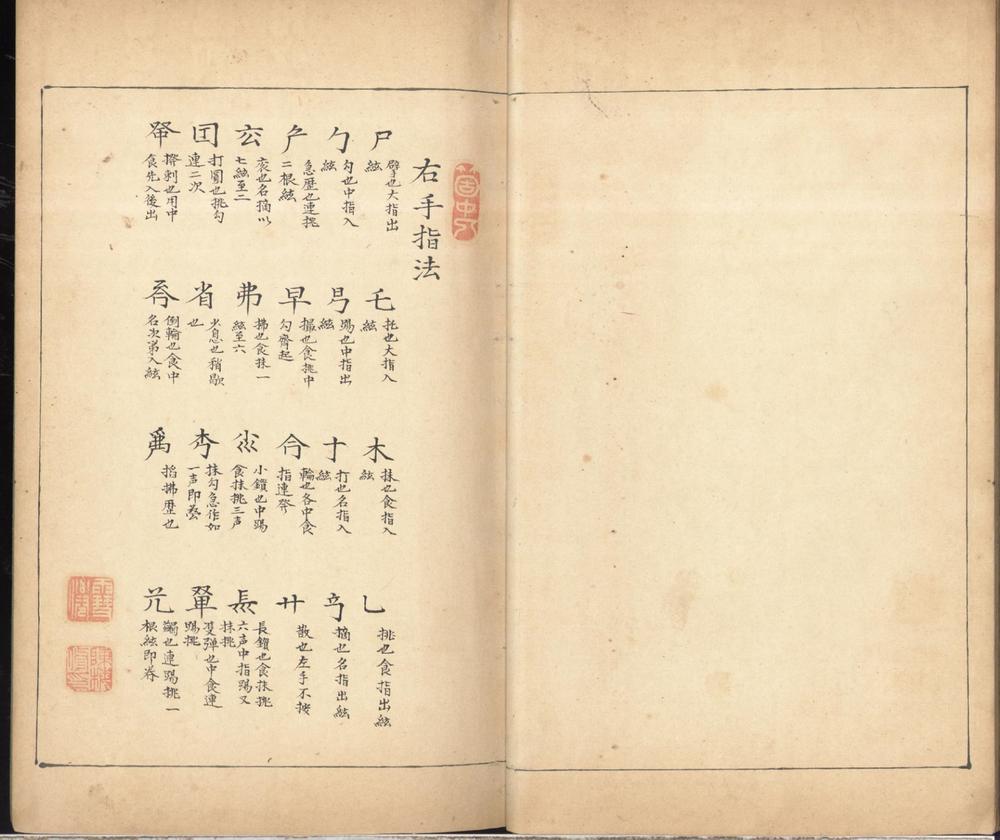 右手指法
尸 擘也大指出絃
乇 托也大指入絃
木 抹也食指入絃
乚 挑也食指出絃
勹 勾也中指入絃
踢也中指出絃
丁 打也名指入絃
摘也名指出絃
急歷也連挑二根絃
早 撮也食挑中勾齊起
輪也名中食指連發
卄 散也左手不按
滾也名摘以七絃至二
弗 拂也食抹一絃至六
小鎖也中踢食抹挑三声
長鎖也食抹挑六声中指踢又抹挑
打圓也挑勾連二次
省 少息也稍歇也
抹勾急作如一声即叠
雙弹也中食連踢挑
擠剩也用中食先入後出
倒輪也食中名次第入絃
掐拂歷也
躅也連踢挑一根絃即卷